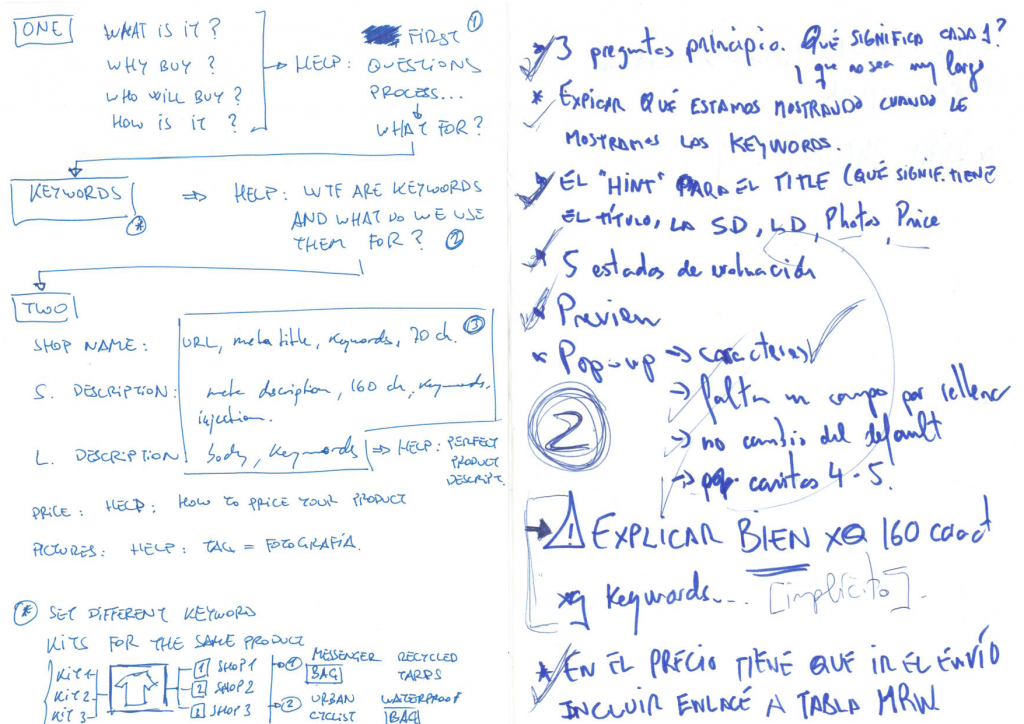 ONE WHAT IS IT?
WHY BUY?
WHO WILL BUY?
HOW IS IT?
HELP: FIRST ①
QUESTIONS
PROCESS...
WHAT FOR?
KEYWORDS ⇒ HELP: WTF ARE KEYWORDS
* AND WHAT DO WE USE
THEM FOR? ②
TWO
SHOP NAME: URL, meta title, keywords, 70 ch. ③
S. DESCRIPTION: meta description, 160 ch, keywords.
injection.
L. DESCRIPTION body, keywords ⇒ HELP: PERFECT
PRODUCT
DESCRIPT.
PRICE: HELP: HOW TO PRICE YOUR PRODUCT
PICTURES: HELP: TAG = FOTOGRAFÍA.
* SET DIFFERENT KEYWORD
KITS FOR THE SAME PRODUCT
KIT 1
KIT 2
KIT 3
1 SHOP 1
2 SHOP 2
3 SHOP 3
① MESSENGER RECYCLED
BAG TARPS
② URBAN WATERPROOF
CYCLIST BAG
* 3 preguntas principio. QUÉ SIGNIFICA CADA 1?
y que no sea muy largo
* EXPICAR QUÉ ESTAMOS MOSTRANDO CUANDO LE
MOSTRAMOS LAS KEYWORDS.
* EL "HINT" PARA EL TITLE (QUÉ SIGNIF. TIENE
EL TÍTULO, LA SD, LD, Photos, Price
* 5 estados de evaluación
* Preview
* Pop-up → caracteres
→ falta un campo por rellenar
→ no cambio del default
→ caritas 4-5.
2
! EXPLICAR BIEN XQ 160 caract
xq keywords... [implícito].
* EN EL PRECIO TIENE QUE IR EL ENVÍO
INCLUIR ENLACE A TABLA MRW